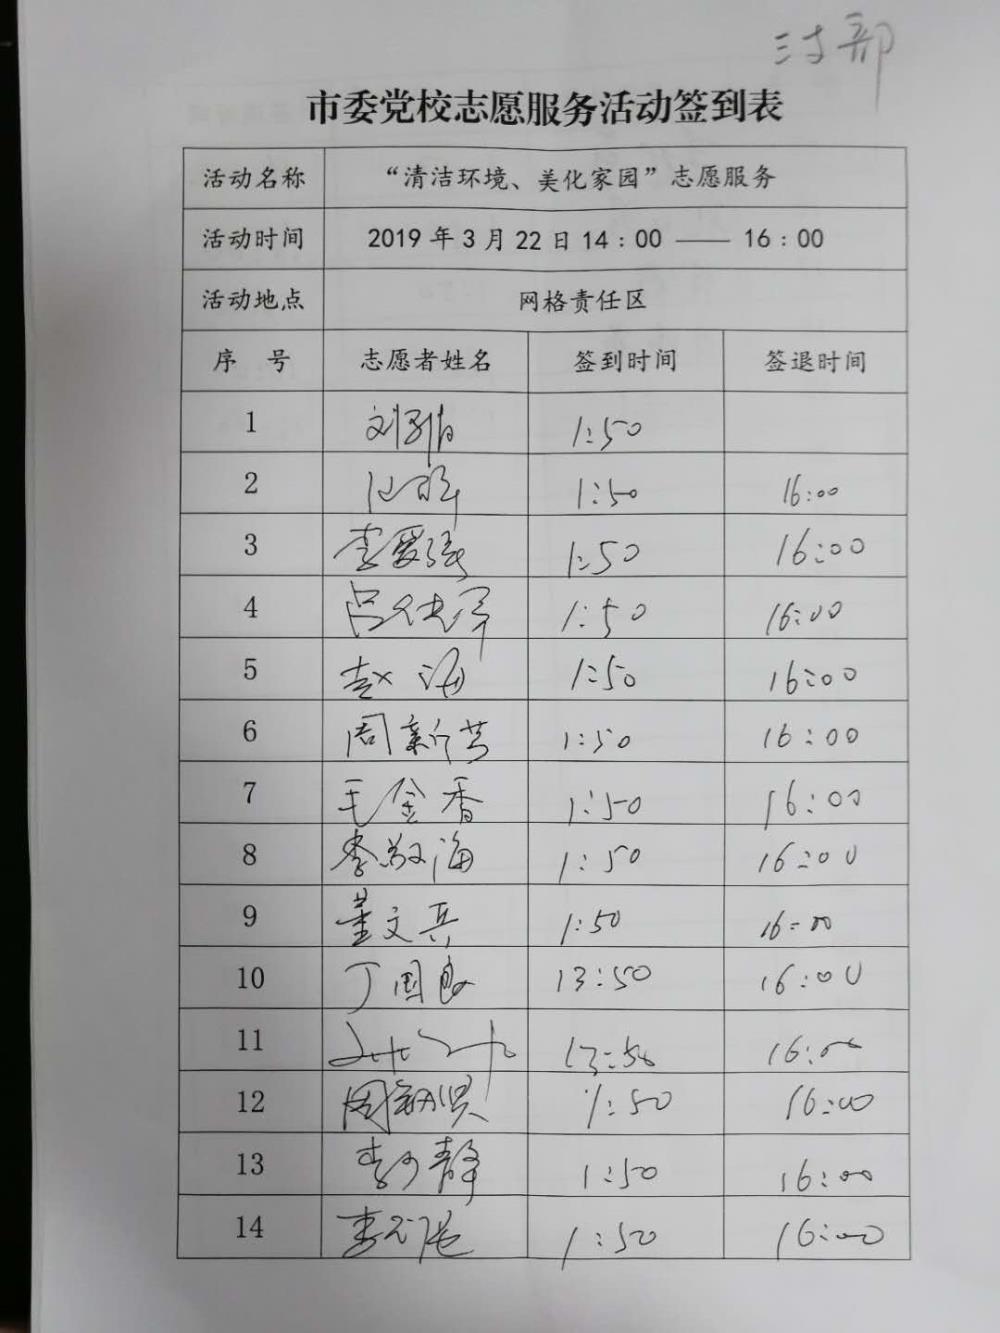 市委党校志愿服务活动签到表
活动名称 “清洁环境、美化家园”志愿服务
活动时间 2019年3月22日14:00——16:00
活动地点 网格责任区
序 号 志愿者姓名 签到时间 签退时间
1 1:50
2 1:50 16:00
3 李爱强 1:50 16:00
4 1:50 16:00
5 赵海 1:50 16:00
6 周新芳 1:50 16:00
7 毛金香 1:50 16:00
8 李海 1:50 16:00
9 董文兵 1:50 16:00
10 丁国良 13:50 16:00
11 13:50 16:00
12 1:50 16:00
13 静 1:50 16:00
14 李 1:50 16:00